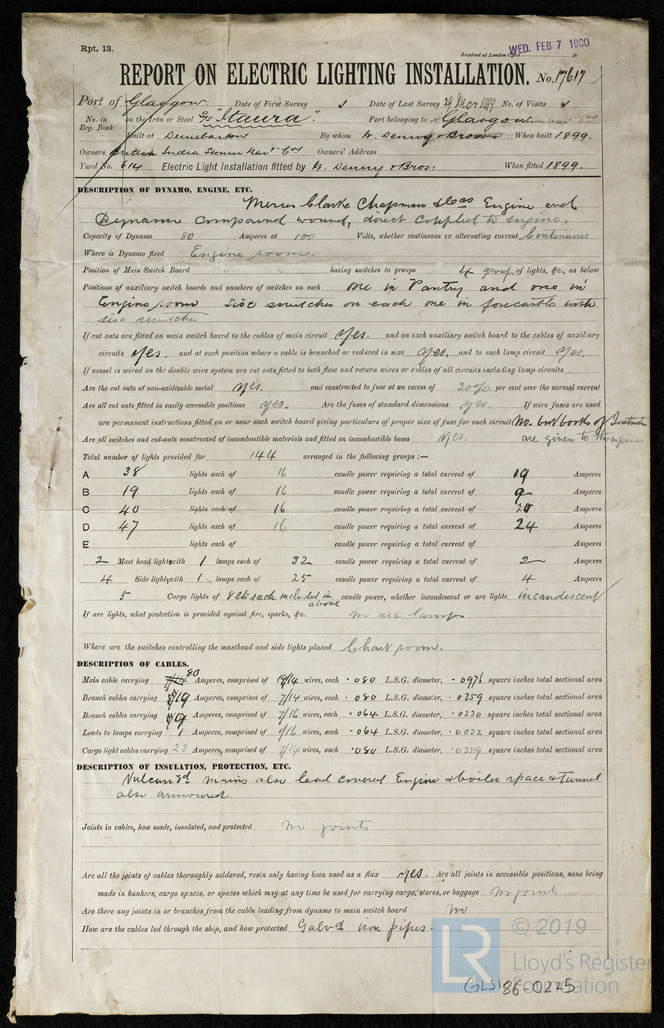 Rpt. 13.
Received at London Office
WED. FEB 7 1900
REPORT ON ELECTRIC LIGHTING INSTALLATION. No. 17617
Port of Glasgow Date of First Survey Date of Last Survey 29 Decr 1899 No. of Visits
No. in Reg. Book on the Iron or Steel "Itaura" Port belonging to Glasgow
Built at Dumbarton By whom W. Denny & Bros When built 1899.
Owners British India Steam Navn Coy Owners' Address
Yard No. 614 Electric Light Installation fitted by W. Denny & Bros: When fitted 1899.
DESCRIPTION OF DYNAMO, ENGINE, ETC.
Messrs Clarke Chapman & Cos Engine and
Dynamo compound wound, direct coupled to engine.
Capacity of Dynamo 80 Amperes at 100 Volts, whether continuous or alternating current Continuous
Where is Dynamo fixed Engine room.
Position of Main Switch Board " " having switches to groups 4 groups of lights, &c., as below
Positions of auxiliary switch boards and numbers of switches on each one in Pantry and one in
Engine room six switches on each one in forecastle with
six switches
If cut outs are fitted on main switch board to the cables of main circuit yes. and on each auxiliary switch board to the cables of auxiliary
circuits yes. and at each position where a cable is branched or reduced in size yes. and to each lamp circuit yes.
If vessel is wired on the double wire system are cut outs fitted to both flow and return wires or cables of all circuits including lamp circuits
Are the cut outs of non-oxidizable metal yes. and constructed to fuse at an excess of 20% per cent over the normal current
Are all cut outs fitted in easily accessible positions yes. Are the fuses of standard dimensions yes. If wire fuses are used
are permanent instructions fitted on or near each switch board giving particulars of proper size of fuse for each circuit No. but books of Instructions
Are all switches and cut-outs constructed of incombustible materials and fitted on incombustible bases yes. are given to the engineers
Total number of lights provided for 144 arranged in the following groups :—
A 38 lights each of 16 candle power requiring a total current of 19 Amperes
B 19 lights each of 16 candle power requiring a total current of 9 Amperes
C 40 lights each of 16 candle power requiring a total current of 20 Amperes
D 47 lights each of 16 candle power requiring a total current of 24 Amperes
E lights each of candle power requiring a total current of Amperes
2 Mast head lights with 1 lamps each of 32 candle power requiring a total current of 2 Amperes
4 Side lights with 1 lamps each of 25 candle power requiring a total current of 4 Amperes
5 Cargo lights of 8 lts each included in above candle power, whether incandescent or arc lights incandescent
If arc lights, what protection is provided against fire, sparks, &c. no arc lamps
Where are the switches controlling the masthead and side lights placed Chart room.
DESCRIPTION OF CABLES.
Main cable carrying 80 Amperes, comprised of 19/14 wires, each .080 L.S.G. diameter, .0976 square inches total sectional area
Branch cables carrying 19 Amperes, comprised of 7/14 wires, each .080 L.S.G. diameter, .0359 square inches total sectional area
Branch cables carrying 9 Amperes, comprised of 7/16 wires, each .064 L.S.G. diameter, .0230 square inches total sectional area
Leads to lamps carrying 1 Amperes, comprised of 1/16 wires, each .064 L.S.G. diameter, .0032 square inches total sectional area
Cargo light cables carrying 23 Amperes, comprised of 7/14 wires, each .080 L.S.G. diameter, .0359 square inches total sectional area
DESCRIPTION OF INSULATION, PROTECTION, ETC.
Vulcanzd mains also lead covered Engine & boiler space & tunnel
also armoured.
Joints in cables, how made, insulated, and protected no joints
Are all the joints of cables thoroughly soldered, resin only having been used as a flux yes. Are all joints in accessible positions, none being
made in bunkers, cargo spaces, or spaces which may at any time be used for carrying cargo, stores, or baggage no joints
Are there any joints in or branches from the cable leading from dynamo to main switch board no
How are the cables led through the ship, and how protected Galvd iron pipes.
LR © 2019
Lloyd's Register
Foundation
GLS 186-0225